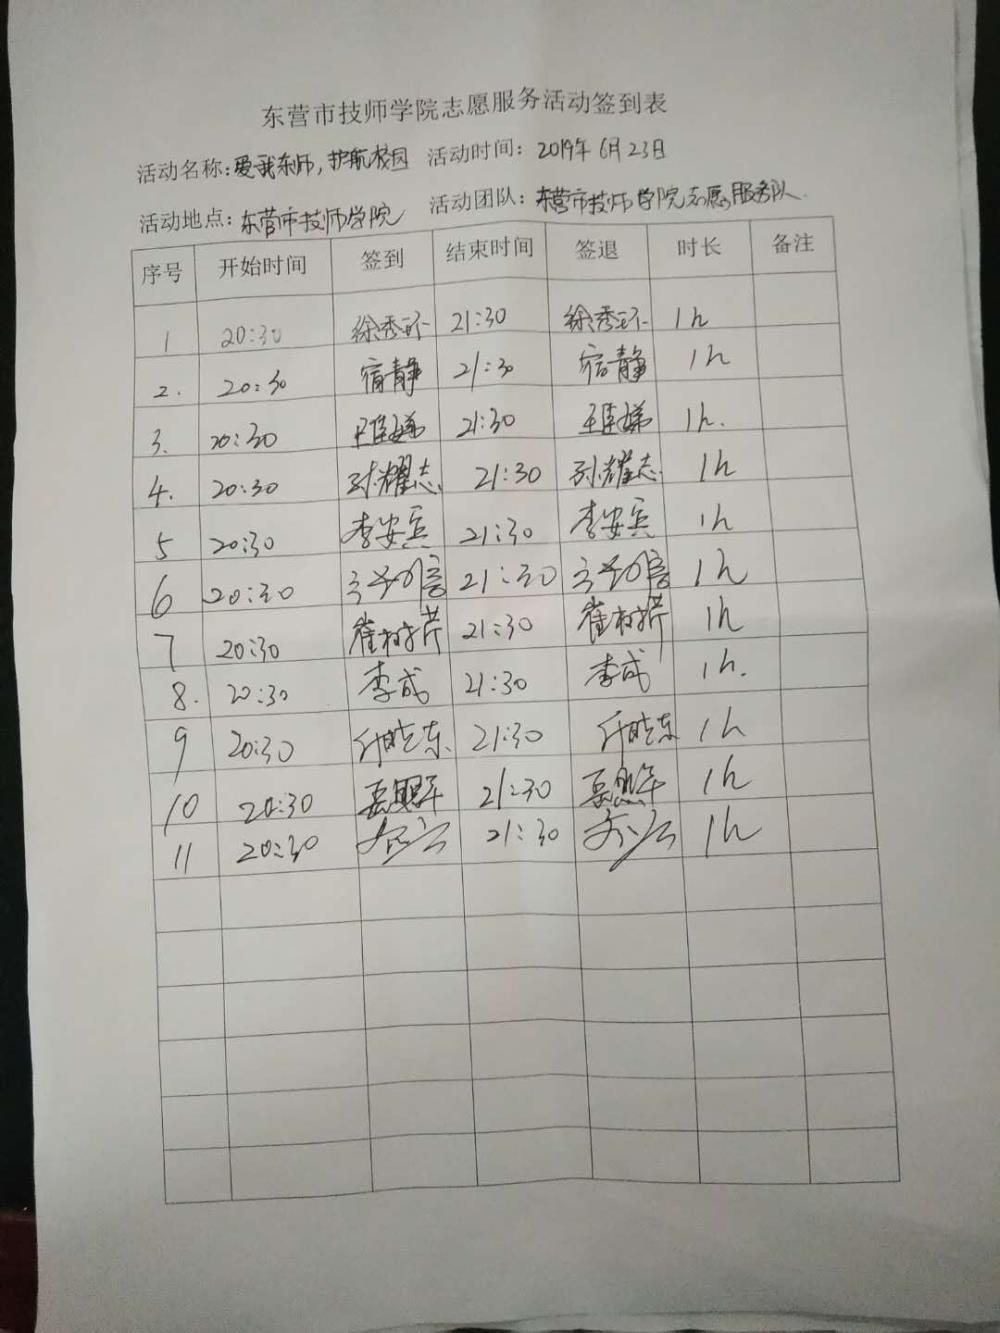 东营市技师学院志愿服务活动签到表
活动名称:爱我东师,护航校园 活动时间: 2019年6月23日
活动地点: 东营市技师学院 活动团队: 东营市技师学院志愿服务队.
序号 开始时间 签到 结束时间 签退 时长 备注
1 20:30 徐秀环 21:30 徐秀环 1h
2. 20:30 宿静 21:30 宿静 1h
3. 20:30 21:30 1h.
4. 20:30 孙耀志 21:30 孙耀志 1h
5 20:30 李安宾 21:30 李安宾 1h
6 20:30 21:30 1h
7 20:30 崔树芹 21:30 崔树芹 1h
8. 20:30 李成 21:30 李成 1h.
9 20:30 21:30 1h
10 20:30 21:30 1h
11 20:30 21:30 1h